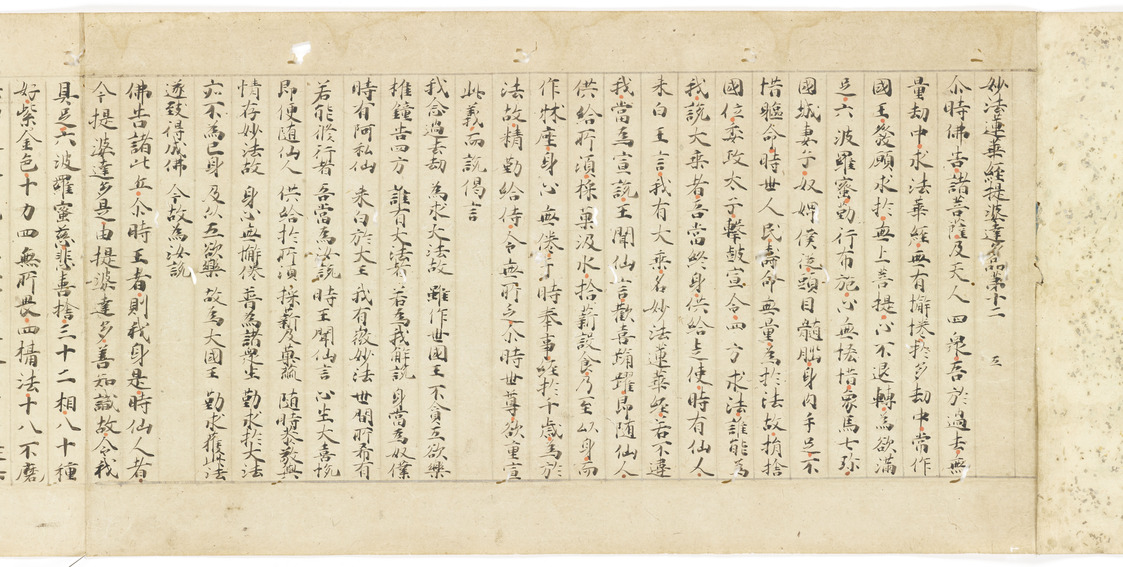 妙法蓮華經提婆達多品第十二 五
尒時佛告諸菩薩及天人四衆吾於過去無
量劫中求法華經無有懈惓於多劫中常作
國王發願求於無上菩提心不退轉爲欲滿
足六波羅蜜勤行布施心無悋惜象馬七弥
國城妻子奴婢僕從頭目髓腦身肉手足不
惜軀命時世人民壽命無量爲於法故捐捨
國位委政太子擊鼓宣令四方求法誰能爲
我說大乘者吾當終身供給走使時有仙人
来白王言我有大乘名妙法蓮華經若不違
我當爲宣說王聞仙言歡喜踊躍即隨仙人
供給所須採菓汲水拾薪設食乃至以身而
作牀座身心無惓于時奉事經於千歳爲於
法故精勤給侍令無所乏尒時世尊欲重宣
此義而說偈言
我念過去劫 爲求大法故 雖作世國王 不貪五欲樂
椎鐘告四方 誰有大法者 若爲我解說 身當爲奴僕
時有阿私仙 来白於大王 我有微妙法 世間所希有
若能修行者 吾當爲汝說 時王聞仙言 心生大喜悦
即便隨仙人 供給於所須 採薪及菓蓏 隨時恭敬與
情存妙法故 身心無懈惓 普爲諸衆生 勤求於大法
亦不爲己身 及以五欲樂 故爲大國王 勤求獲此法
遂致得成佛 今故爲汝說
佛告諸比丘尒時王者則我身是時仙人者
今提婆達多是由提婆達多善知識故令我
具足六波羅蜜慈悲喜捨三十二相八十種
好紫金色十力四無所畏四攝法十八不